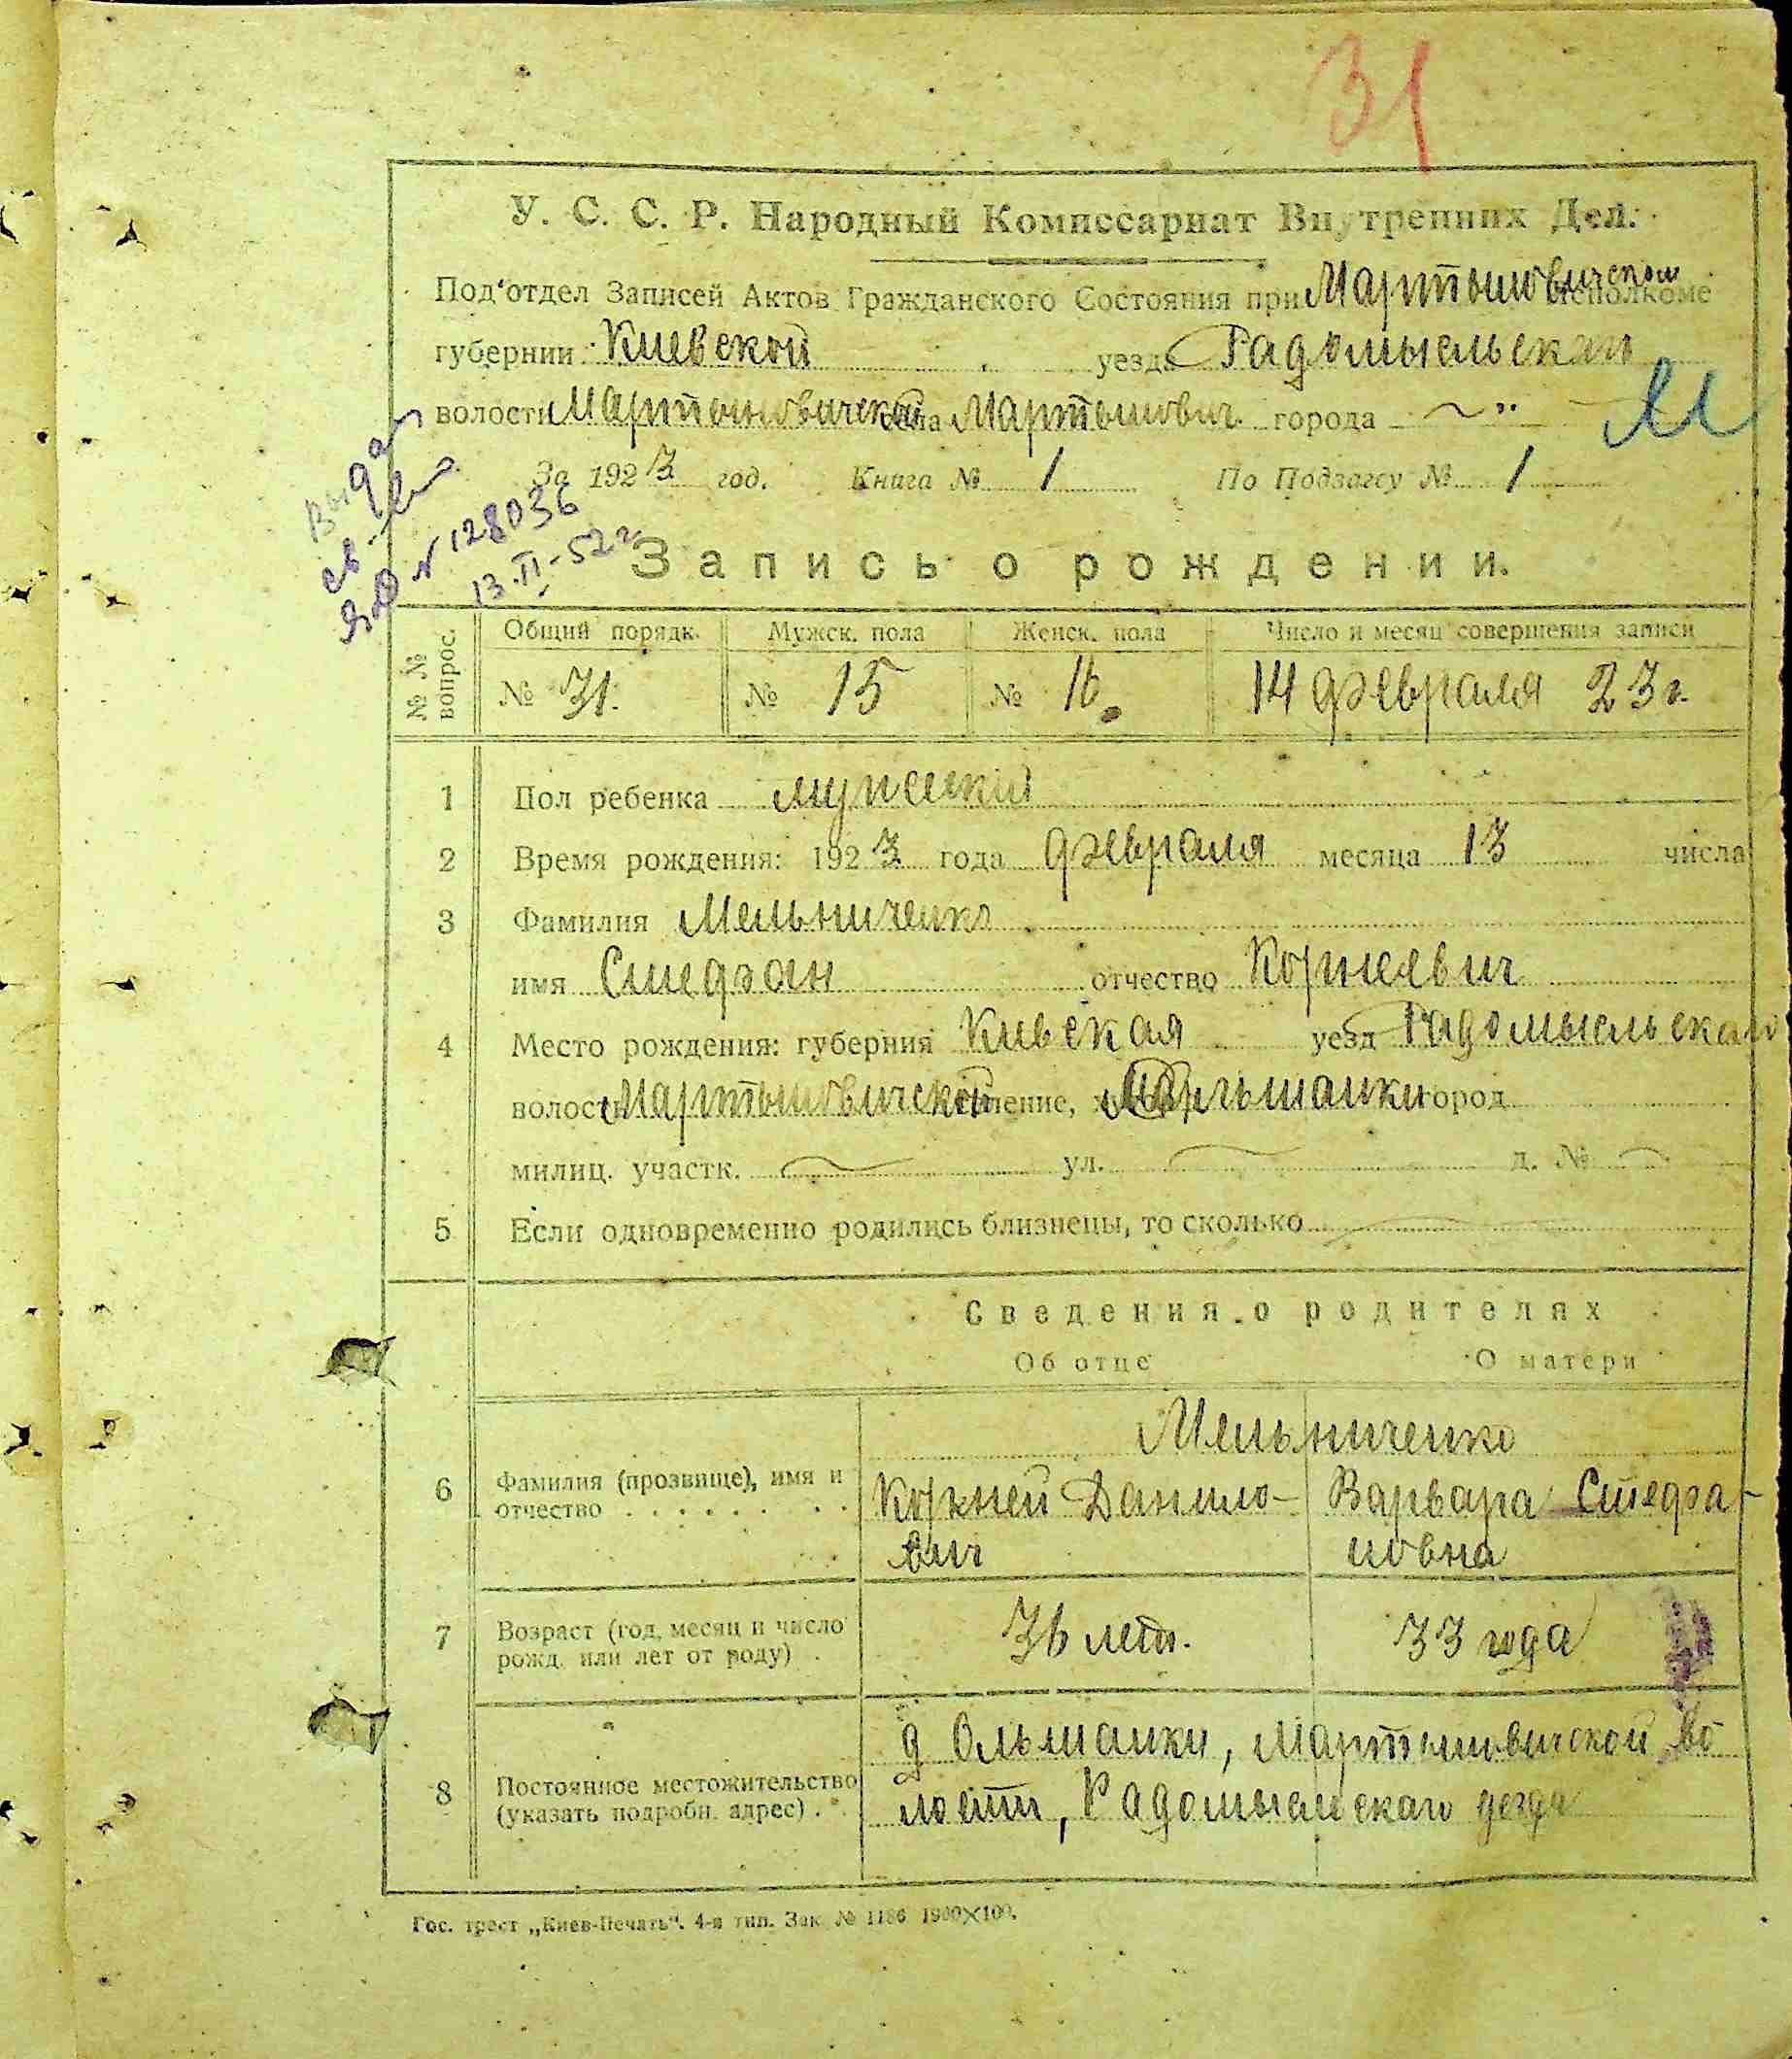 31
У. С. С. Р. Народный Комиссариат Внутренних Дел.
Под'отдел Записей Актов Гражданского Состояния при Мартыновичском исполкоме
губернии Киевской уезда Радомысльскаго
волости Мартыновичской села Мартынович города
М
За 1923 год. Книга № 1 По Подзагсу № 1
Выдан
св-во
ЯЮ № 128036
13.II-52г
Запись о рождении.
№ № вопрос. Общий порядк. Мужск. пола Женск. пола Число и месяц совершения записи
№ 31. № 15 № 16 14 февраля 23 г.
1 Пол ребенка мужский
2 Время рождения: 1923 года февраля месяца 13 числа
3 Фамилия Мельниченко
имя Стефан отчество Корнеевич
4 Место рождения: губерния Кивская уезд Радомысльскаго
волость Мартыновичской селение, город
милиц. участк. ул. д. №
5 Если одновременно родились близнецы, то сколько
Сведения о родителях
Об отце О матери
Мельниченко
6 Фамилия (прозвище), имя и отчество Корней Данило- Варвара Стефа-
вич новна
7 Возраст (год, месяц и число рожд. или лет от роду) 36 лет. 33 года
8 Постоянное местожительство (указать подробн. адрес) д Ольшанки, Мартыновичской во
лости, Радомысльскаго уезда
Гос. трест „Киев-Печать". 4-я тип. Зак. № 1186 1900×100.